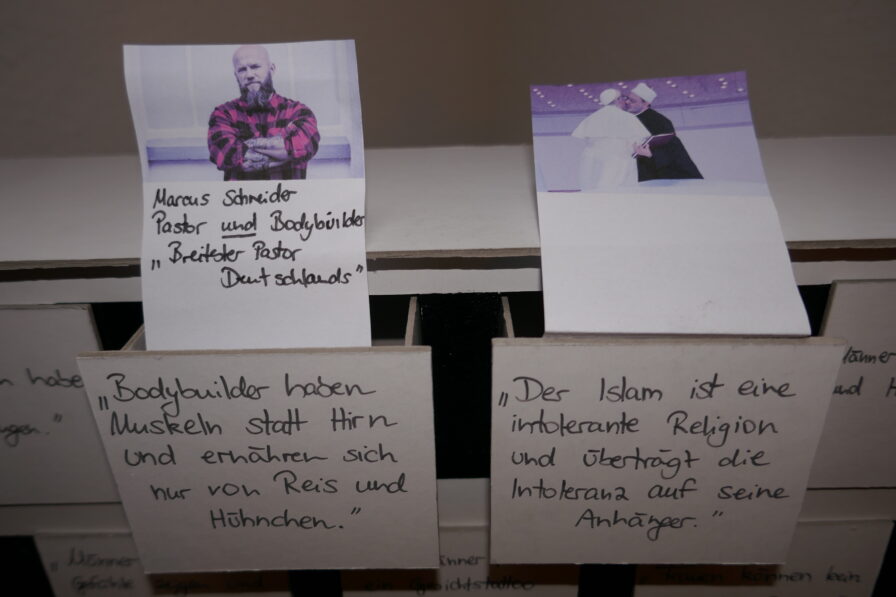 Marcus Schneider
Pastor und Bodybuilder
„Breitester Pastor
Deutschlands"
„Bodybuilder haben
Muskeln statt Hirn
und ernähren sich
nur von Reis und
Hühnchen."
„Der Islam ist eine
intolerante Religion
und überträgt die
Intoleranz auf seine
Anhänger."
haben
Männer
und
„Männer
Gefühle zeigen und
Männer
ein Gesichtstattoo
"Frauen können kein